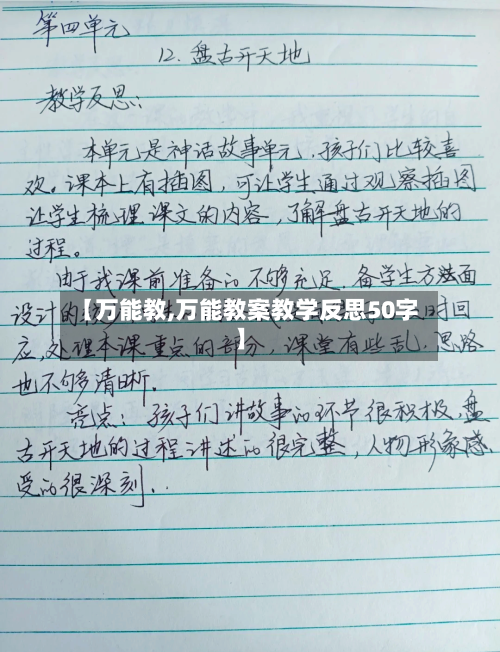 第四单元
12. 盘古开天地
教学反思:
本单元是神话故事单元,孩子们比较喜
欢。课本上有插图,可让学生通过观察插图
让学生梳理课文的内容,了解盘古开天地的
过程。
由于我课前准备的不够充足,备学生方法面
设计的
【万能教,万能教案教学反思50字
】
时回
应,处理本课重点的部分,课堂有些乱,思路
也不够清晰。
亮点:孩子们讲故事的环节很积极,盘
古开天地的过程讲述的很完整,人物形象感
受的很深刻.